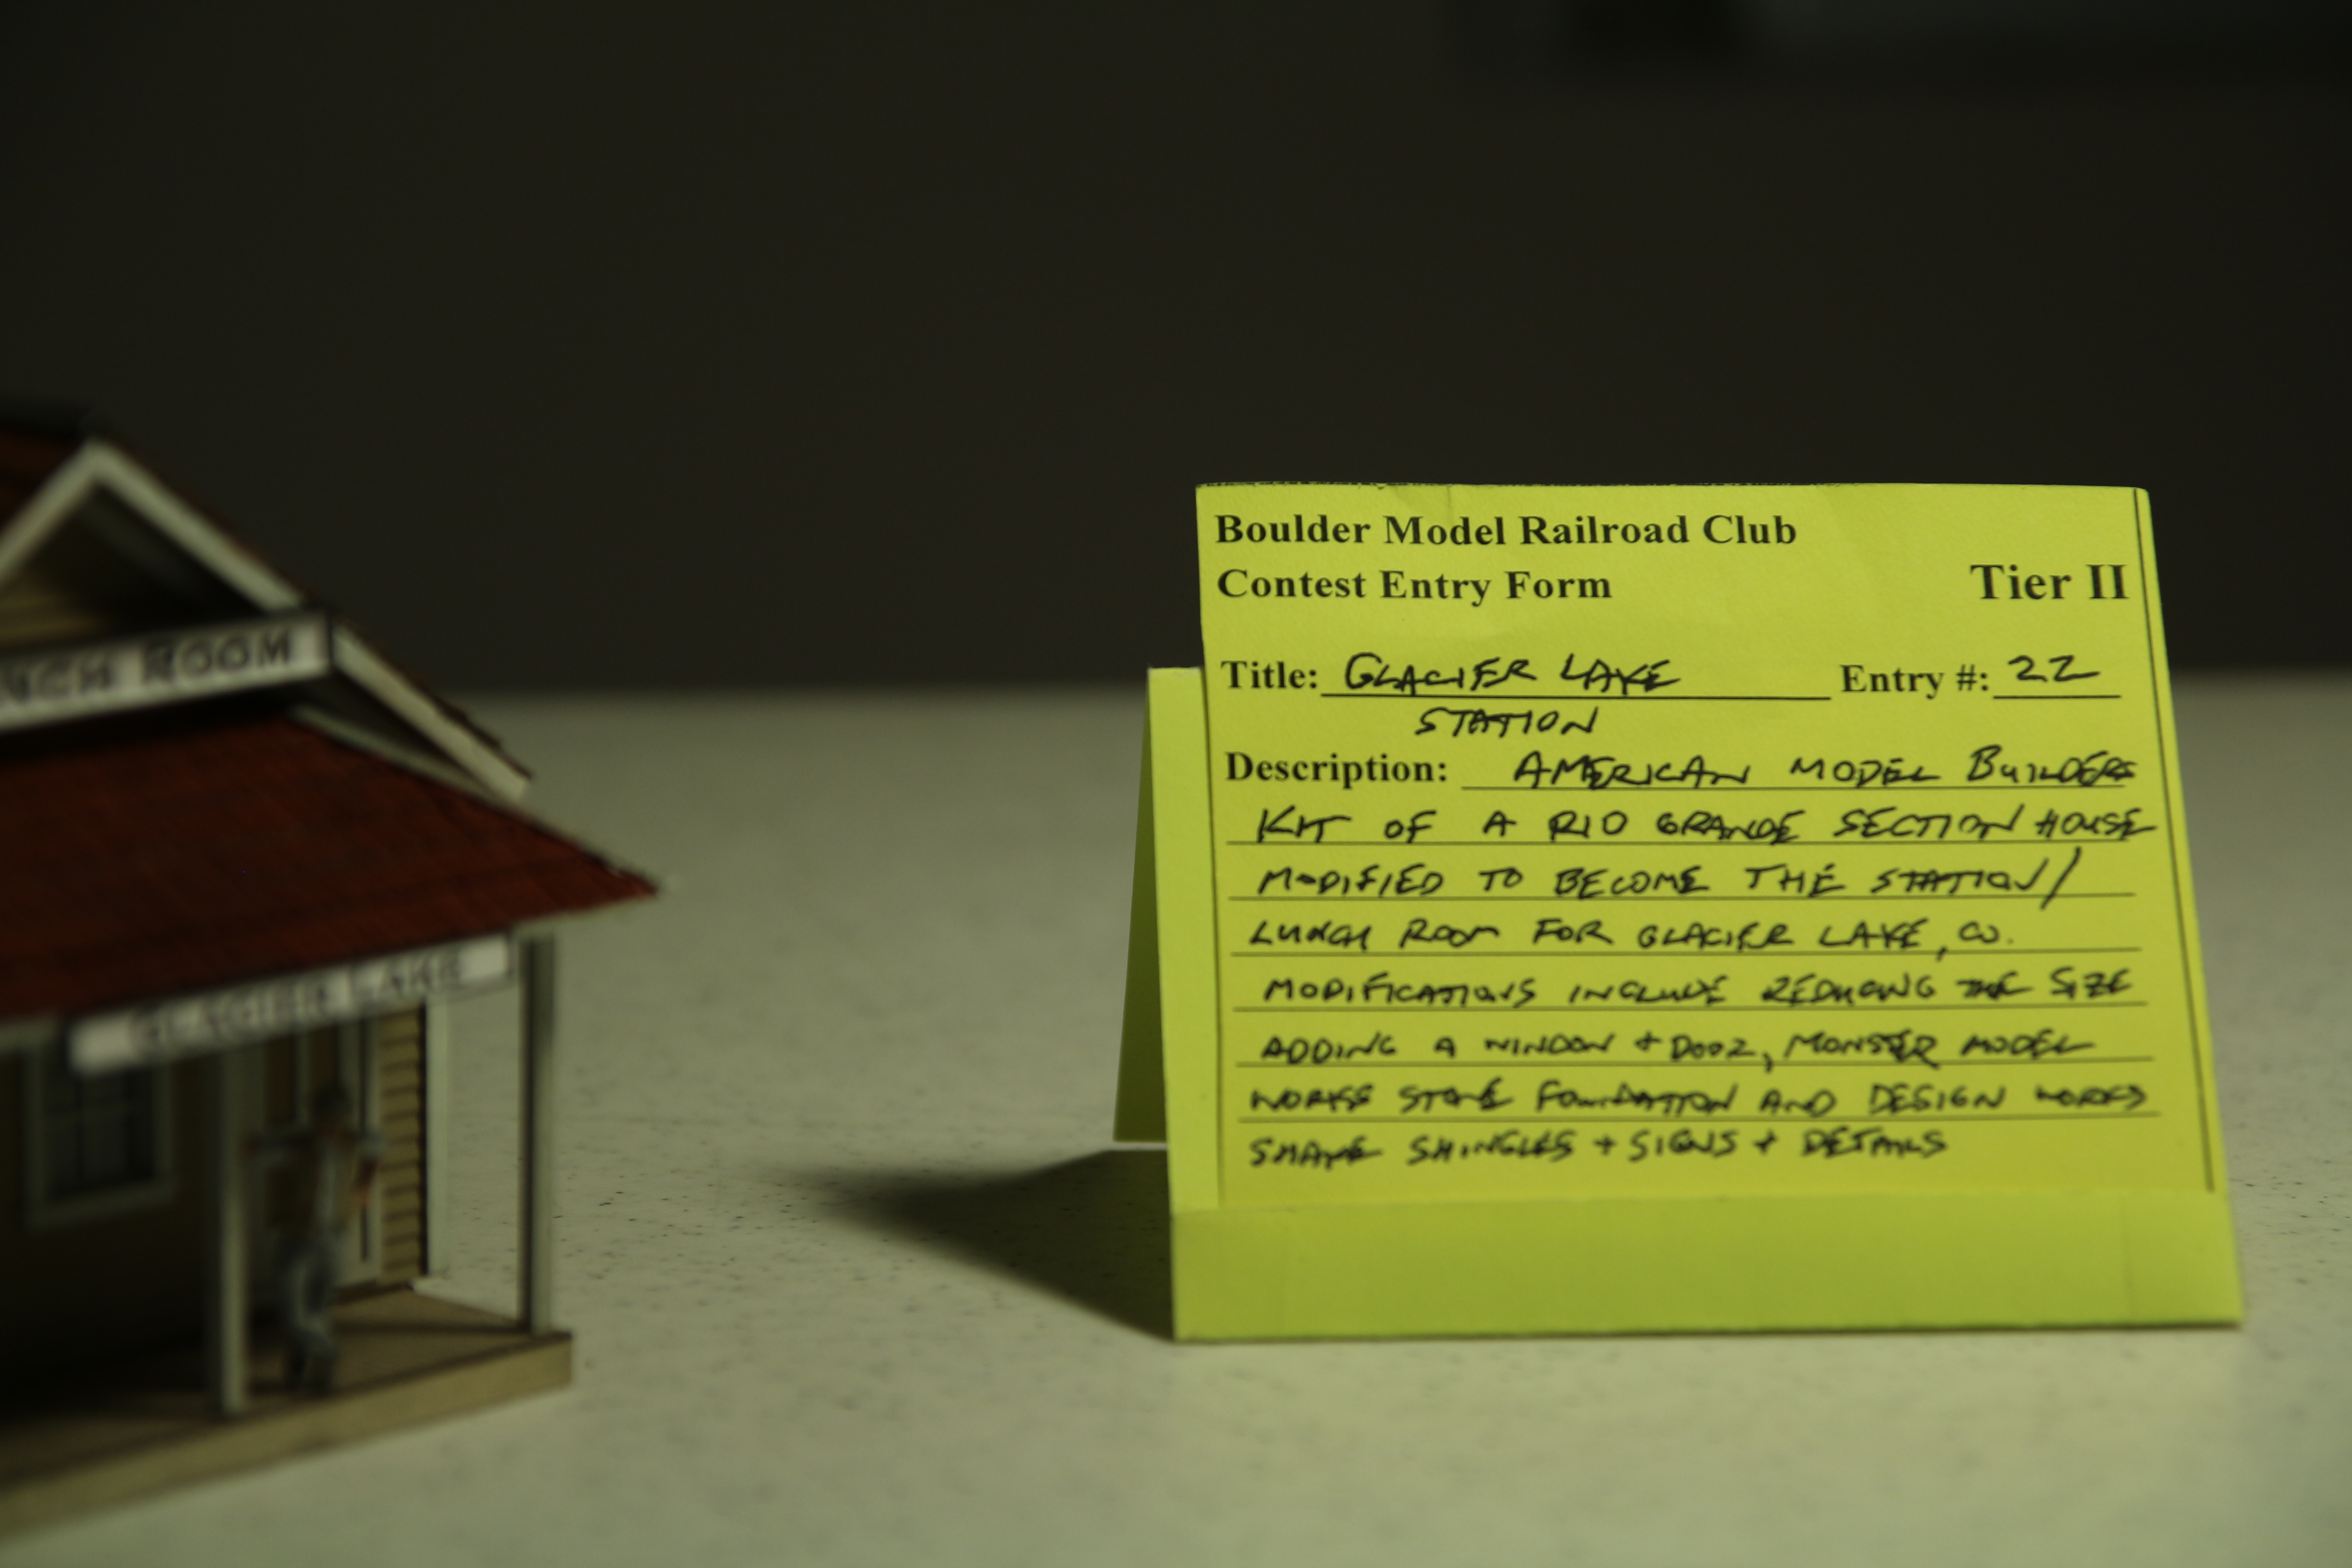 NCH ROOM
GLACIER LAKE
Boulder Model Railroad Club
Contest Entry Form
Tier II
Title: GLACIER LAKE Entry #: 22
STATION
Description: AMERICAN MODEL BUILDERS
KIT OF A RIO GRANDE SECTION HOUSE
MODIFIED TO BECOME THE STATION/
LUNCH ROOM FOR GLACIER LAKE, CO.
MODIFICATIONS INCLUDE REDUCING THE SIZE
ADDING A WINDOW + DOOR, MONSTER MODEL
WORKS STONE FOUNDATION AND DESIGN WORKS
SHAKE SHINGLES + SIGNS + DETAILS